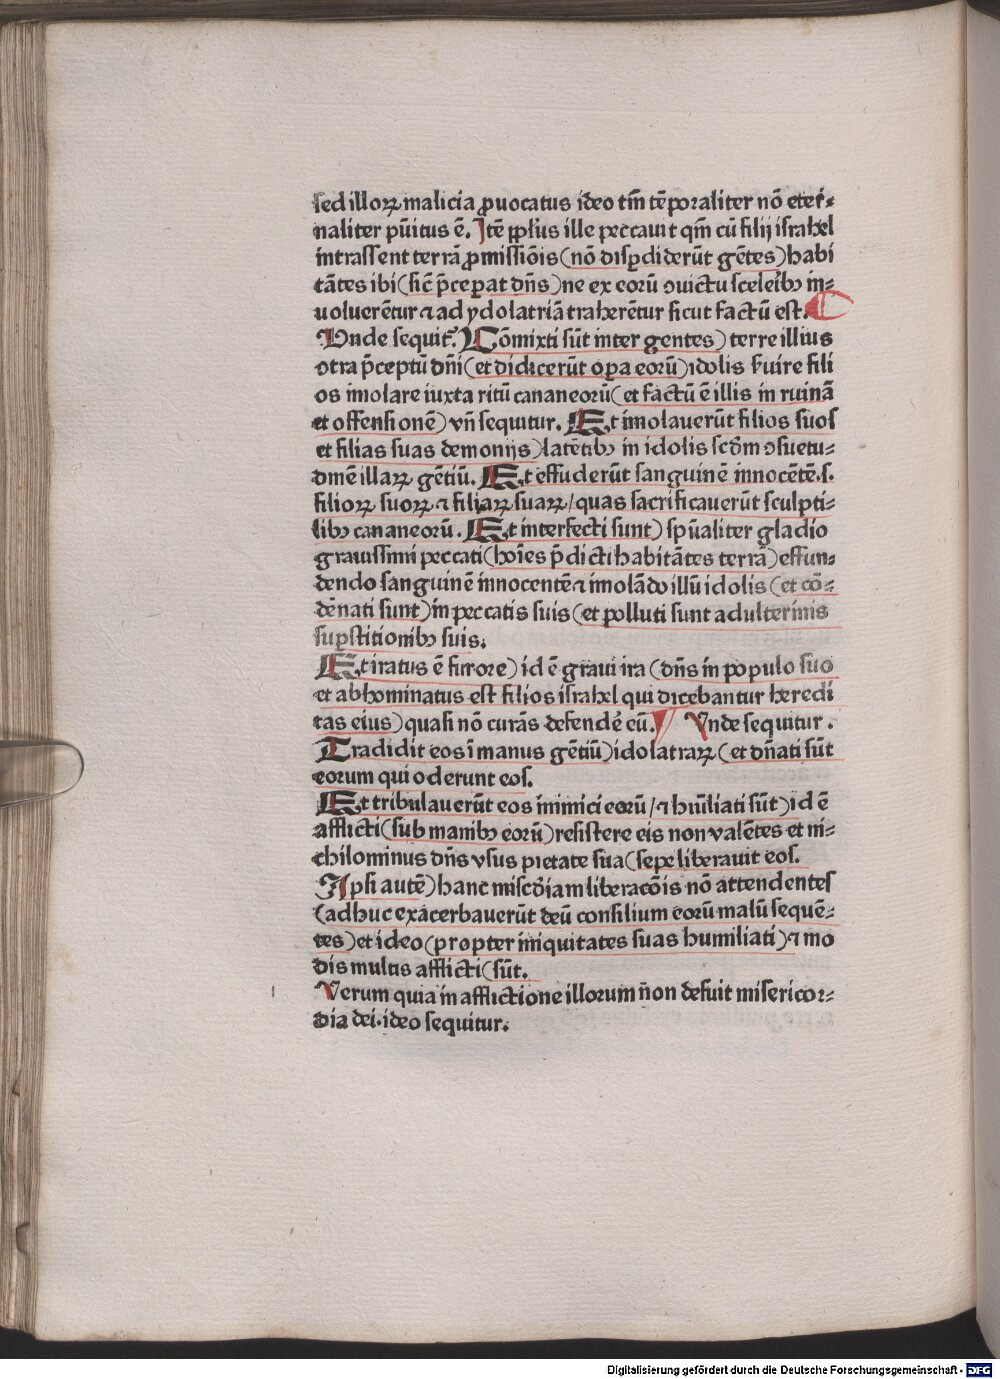 sed illoꝝ malicia ꝓuocatus ideo tm̄ tēporaliter nō eter⸗
naliter pūitus ē. Itē ppl̓us ille peccauit qm̄ cū filij israhel
intrassent terrā ꝓmissiōis (nō disꝑdiderūt gētes) habi
tātes ibi (sic̄ p̄ceperat dn̄s) ne ex eorū ↄuictu sceleribꝫ in⸗
uoluerētur ⁊ ad ydolatriā traherētur sicut factū est.
Vnde sequit᷑. Cōmixti sūt inter gentes) terre illius
ↄtra p̄ceptū dn̄i (et didicerūt oꝑa eorū) idolis ẜuire fili
os īmolare iuxta ritū cananeorū (et factū ē illis in ruinā
et offensionē) vn̄ sequitur. Et imolauerūt filios suos
et filias suas demonijs) latētibꝫ in idolis scd̄m ↄsuetu⸗
dinē illaꝝ gētiū. Et effuderūt sanguinē innocētē.s.
filioꝝ suoꝝ ⁊ filiaꝝ suaꝝ/quas sacrificauerūt sculpti⸗
libꝫ cananeorū. Et interfecti sunt) sp̄ualiter gladio
grauissimi peccati (hoīes p̄dicti habitātes terrā) effun⸗
dendo sanguinē innocentē ⁊ imolādo illū idolis (et cō⸗
dēnati sunt) in peccatis suis (et polluti sunt adulterinis
suꝑstitionibꝫ suis.
Et iratus ē furore) id ē graui ira (dn̄s in populo suo
et abhominatus est filios israhel qui dicebantur heredi
tas eius) quasi nō curās defendē eū. Vnde sequitur.
Tradidit eos ī manus gētiū) idolatraꝝ (et dn̄ati sūt
eorum qui oderunt eos.
Et tribulauerūt eos inimici eorū/⁊ hūiliati sūt) id ē
afflicti (sub manibꝫ eorū) resistere eis non valētes et ni⸗
chilominus dn̄s vsus pietate sua (sepe liberauit eos.
Ipsi autē) hanc misc̄diam liberacōis nō attendentes
(adhuc exacerbauerūt deū consilium eorū malū sequē⸗
tes) et ideo (propter iniquitates suas humiliati) ⁊ mo
dis multis afflicti (sūt.
Verum quia in afflictione illorum n̄on defuit misericor⸗
dia dei.ideo sequitur.
Digitalisierung gefördert durch die Deutsche Forschungsgemeinschaft - DFG